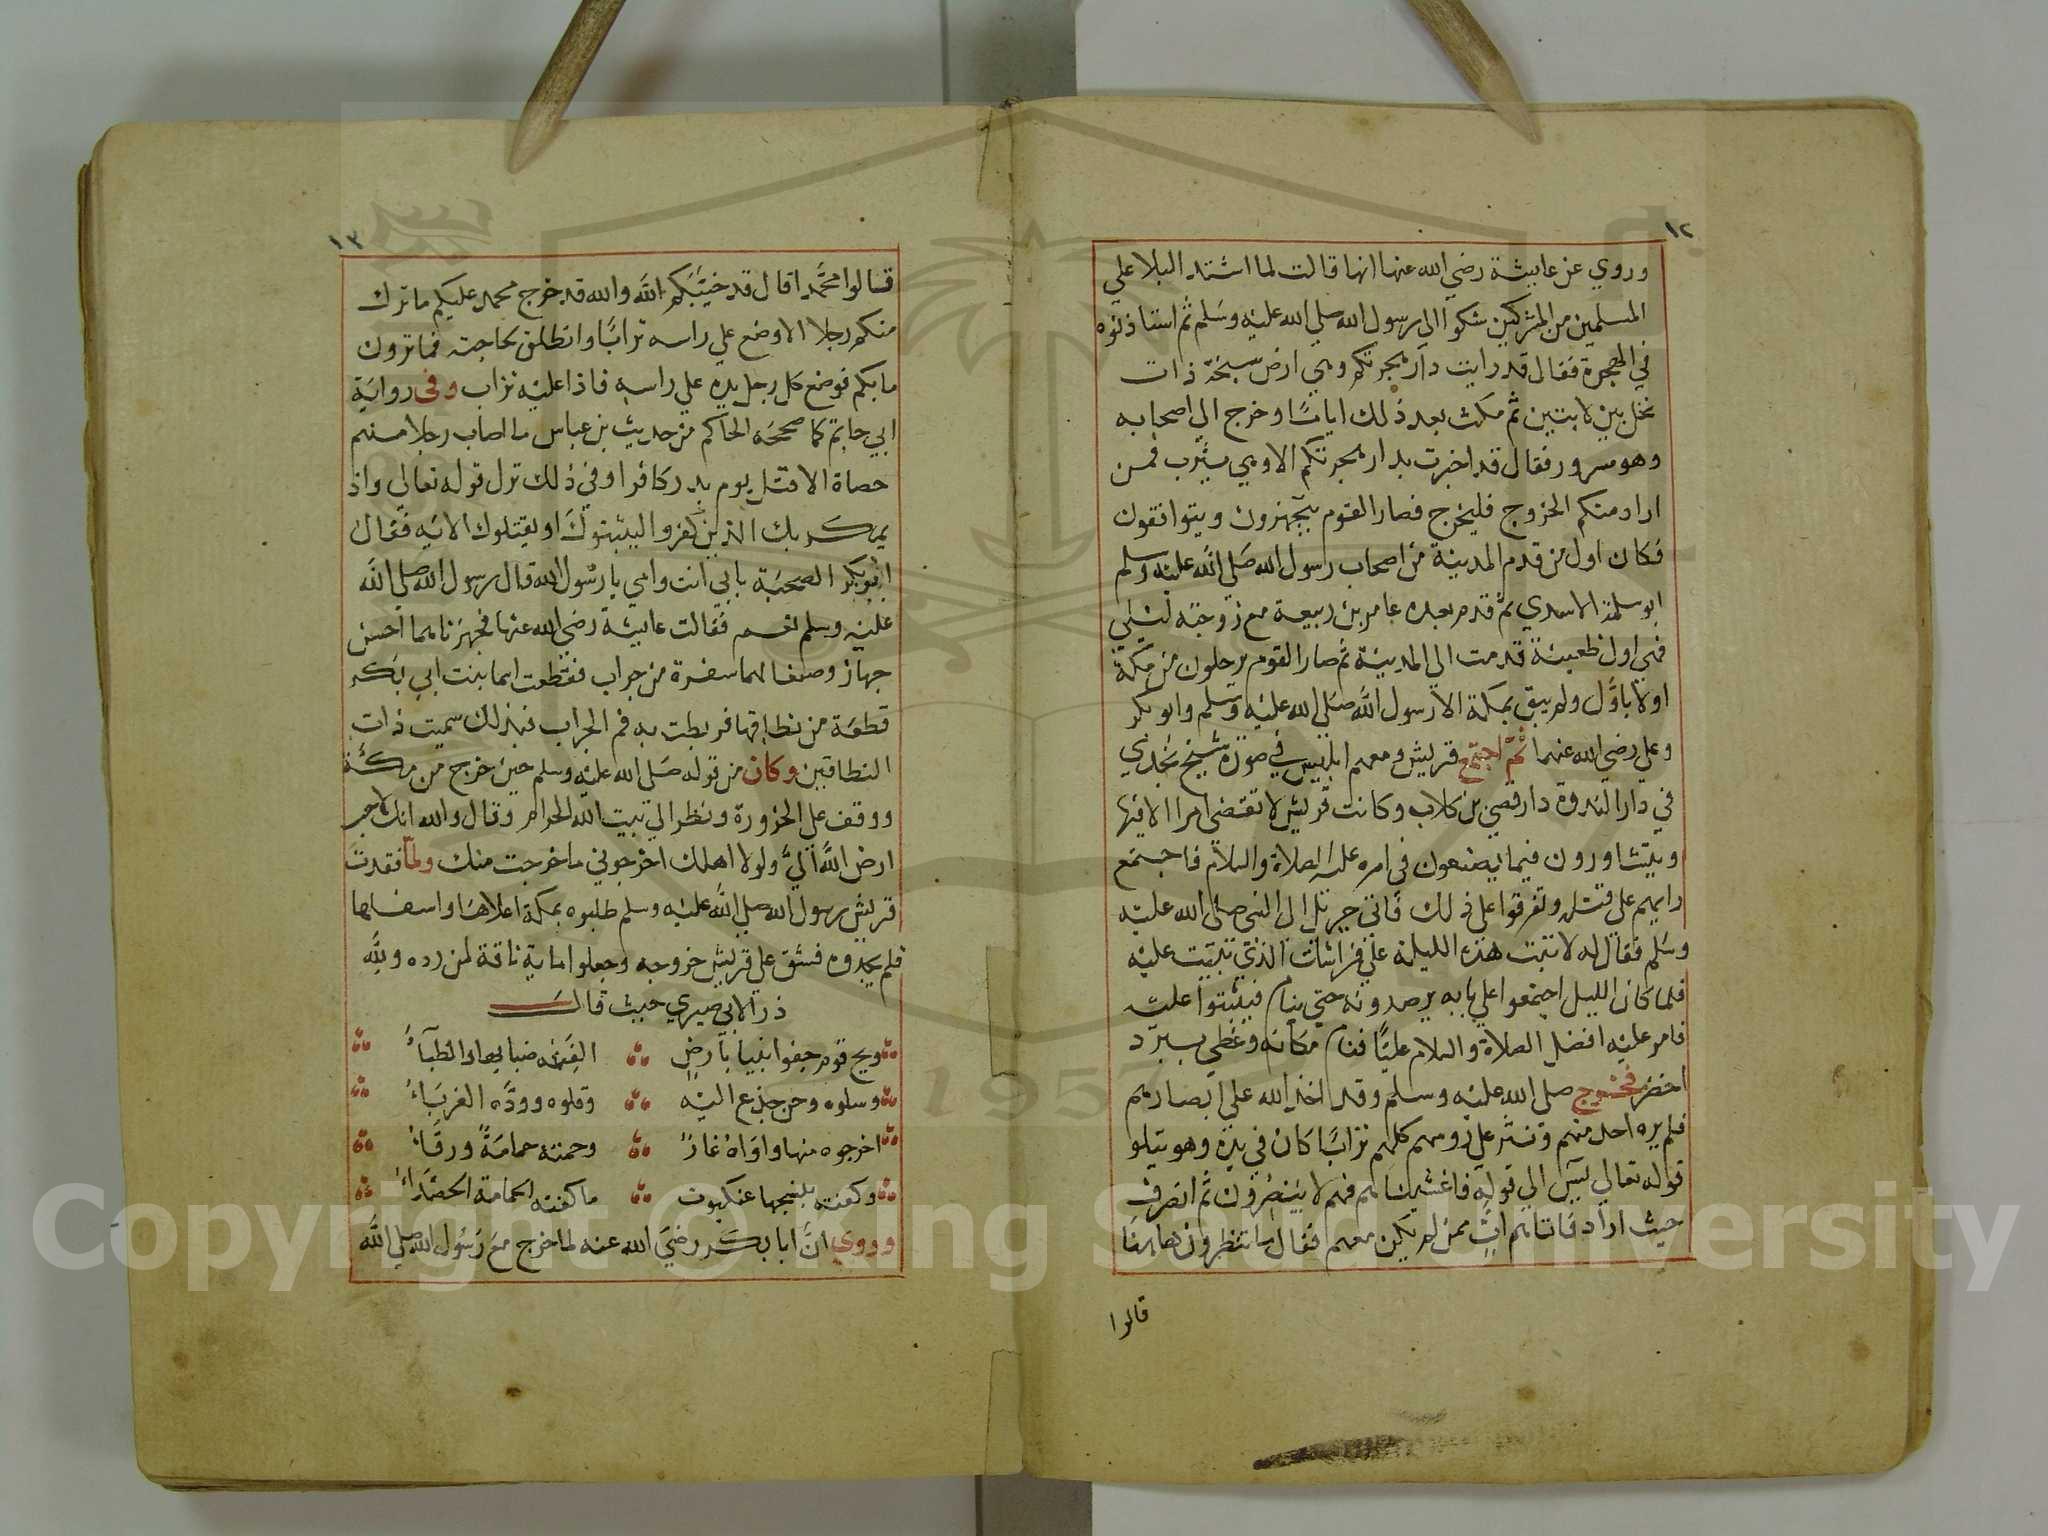 ١٢
وروي عن عايشة رضي الله عنها انها قالت لما اشتد البلا علي
المسلمين من المشركين شكوا الي رسول الله صلي الله عليه وسلم ثم استاذنوه
في الهجرة فقال قد رايت دار هجرتكم وهي ارض سبخة ذات
نخل بين لابتين ثم مكث بعد ذلك اياما وخرج الي اصحابه
وهو مسرور فقال قد اخبرت بدار هجرتكم الا وهي يثرب فمن
اراد منكم الخروج فليخرج فصار القوم يتجهزون ويتوافقون
فكان اول من قدم المدينة من اصحاب رسول الله صلي الله عليه وسلم
ابو سلمة الاسدي ثم قدم بعده عامر بن ربيعة مع زوجته ليلي
فهي اول ظعينة قدمت الي المدينة ثم صار القوم يرحلون من مكة
اولا باول ولم يبق بمكة الا رسول الله صلي الله عليه وسلم وابو بكر
وعلي رضي الله عنهما ثم اجتمع قريش ومعهم ابليس في صورة شيخ نجدي
في دار الندوة دار قصي بن كلاب وكانت قريش لا تقضي امرا الا فيها
ويتشاورون فيما يصنعون في امره عليه الصلاة والسلام فاجتمع
رايهم علي قتله وتفرقوا علي ذلك فاتي جبريل الي النبي صلي الله عليه
وسلم فقال له لا تبت هذه الليلة علي فراشك الذي تبيت عليه
فلما كان الليل اجتمعوا علي بابه يرصدونه حتي ينام فيثبتوا عليه
فامر عليه افضل الصلاة والسلام عليًا فنام مكانه وغطي ببرد
اخضر فخرج صلي الله عليه وسلم وقد اخذ الله علي ابصارهم
فلم يره احد منهم ونثر علي رؤسهم كلهم ترابا كان في يده وهو يتلو
قوله تعالي يس الي قوله فاغشيناهم فهم لا يبصرون ثم انصرف
حيث اراد فاتاهم اتٍ ممن لم يكن معهم فقال ما تنتظرون هاهنا
قالوا
١٣
قالوا محمدا قال قد خيبكم الله والله قد خرج محمد عليكم ما ترك
منكم رجلا الا وضع علي راسه ترابًا وانطلق لحاجته فما ترون
ما بكم فوضع كل رجل يده علي راسه فاذا عليه تراب وفي رواية
ابي حاتم كما صححه الحاكم من حديث بن عباس ما اصاب رجلا منهم
حصاة الا قتل يوم بدر كافرا وفي ذلك نزل قوله تعالي واذ
يمكر بك الذين كفروا ليثبتوك او يقتلوك الايه فقال
ابو بكر الصحبة بابي انت وامي يا رسول الله قال رسول الله صلي الله
عليه وسلم نعم فقالت عايشة رضي الله عنها فجهزناهما احسن
جهاز وصنعنا لهما سفرة من جراب فقطعت اسما بنت ابي بكر
قطعة من نطاقها فربطت به فم الجراب فبذلك سميت ذات
النطاقين وكان من قوله صلي الله عليه وسلم حين خرج من مكة
ووقف علي الحزورة ونظر الي بيت الله الحرام وقال والله انك لاحب
ارض الله الي ولولا اهلك اخرجوني ما خرجت منك ولما فقدت
قريش رسول الله صلي الله عليه وسلم طلبوه بمكة اعلاها واسفلها
فلم يجدوه فشق علي قريش خروجه وجعلوا ماية ناقة لمن رده ولله
در الابي صيري حيث قال
ويح قوم جفوا نبيا بارضٍ الفته ضبابها والظباءُ
وسلوه وحن جذع اليه وقلوه ووده الغرباءُ
اخرجوه منها واواه غارٌ وحمته حمامةٌ ورقاءُ
وكفته بنسجها عنكبوت ما كفته الحمامة الحصداءُ
وروي ان ابا بكر رضي الله عنه لما خرج مع رسول الله صلي الله
Copyright © King Saud University
1957